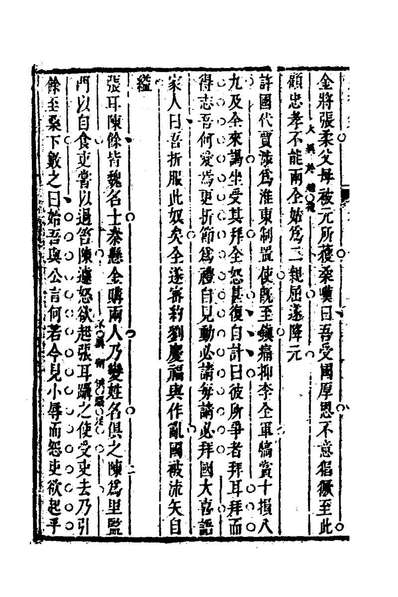 金將張柔父母被元所獲柔嘆曰吾受國厚恩不意猖獗至此
顧忠孝不能兩全姑爲三起屈遂降元
許國代賈涉爲淮東制置使既至鎮痛抑李全軍犒賞十損八
九及全來謁坐受其拜全怒甚復自計曰彼所爭者拜耳拜而
得志吾何愛焉更折節爲禮自見動必請每請必拜國大喜語
家人曰吾折服此奴矣全遂審約劉慶福與作亂國被流矢自
縊
張耳陳餘皆魏名士秦懸金購兩人乃變姓名俱之陳爲里監
門以自食吏嘗以過笞陳遽怒欲起張耳躡之使受吏去乃引
餘至桑下數之曰始吾與公言何若今見小辱而怒吏欲起乎